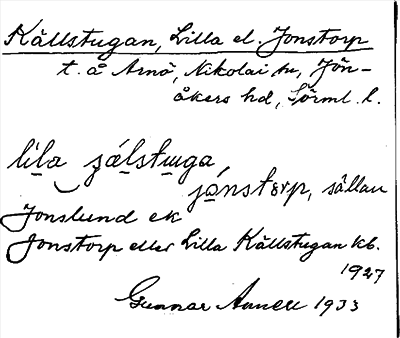 Källstugan, Lilla el. Jonstorp
t. å Arnö, Nikolai sn, Jön-
åkers hd, Sörml. l.
lila şálstuga,
jónstorp, sällan
Jonslund ek
Jonstorp eller Lilla Källstugan kb.
1927
Gunnar 1933